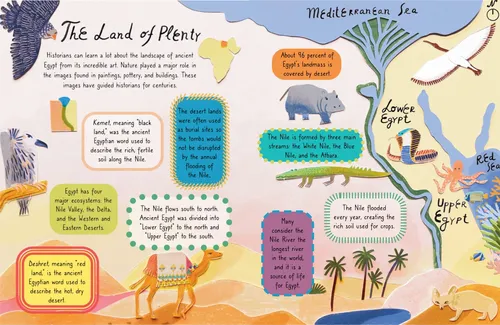 The Land of Plenty
Historians can learn a lot about the landscape of ancient
Egypt from its incredible art. Nature played a major role in
the images found in paintings, pottery, and buildings. These
images have guided historians for centuries.
Kemet, meaning "black
land," was the ancient
Egyptian word used to
describe the rich, fertile
soil along the Nile.
The desert lands
were often used
as burial sites so
the tombs would
not be disrupted
by the annual
flooding of
the Nile.
Egypt has four
major ecosystems: the
Nile Valley, the Delta,
and the Western and
Eastern Deserts.
The Nile flows south to north.
Ancient Egypt was divided into
"Lower Egypt" to the north and
"Upper Egypt" to the south.
Deshret, meaning "red
land," is the ancient
Egyptian word used to
describe the hot, dry
desert.
About 96 percent of
Egypt's landmass is
covered by desert.
The Nile is formed by three main
streams: the White Nile, the Blue
Nile, and the Atbara.
Many
consider the
Nile River the
longest river
in the world,
and it is a
source of life
for Egypt.
The Nile flooded
every year, creating the
rich soil used for crops.
Mediterranean Sea
N
Lower
Egypt
Red
Sea
Upper
Egypt